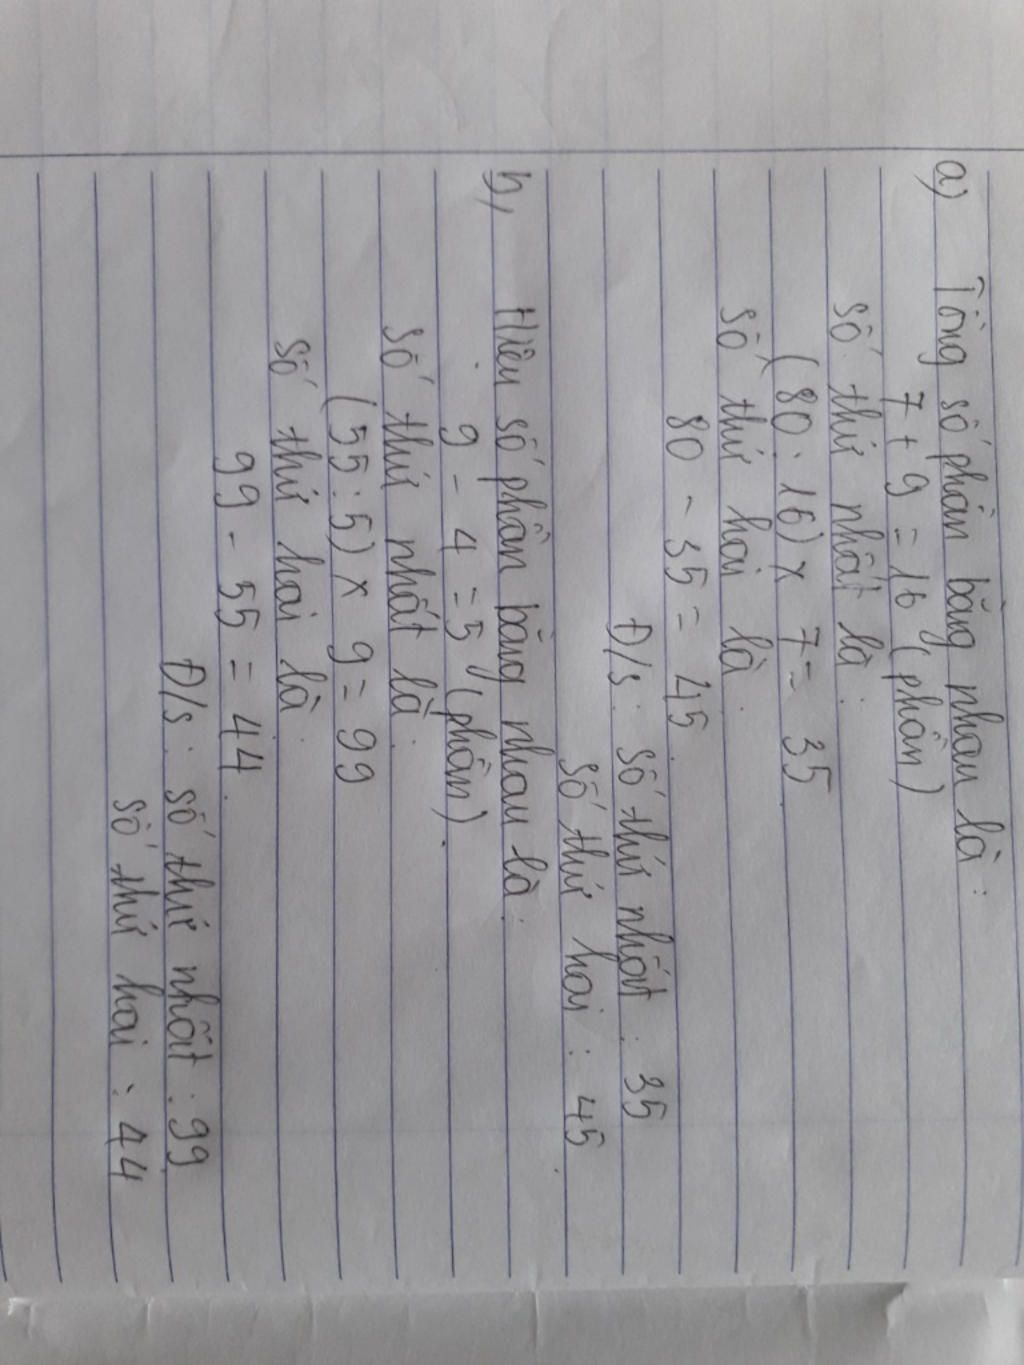 a) Tổng số phần bằng nhau là :
7 + 9 = 16 (phần)
số thứ nhất là :
(80 : 16) x 7 = 35
số thứ hai là :
80 - 35 = 45
Đ/s : số thứ nhất : 35
số thứ hai : 45
b, Hiệu số phần bằng nhau là :
9 - 4 = 5 (phần).
số thứ nhất là :
(55 : 5) x 9 = 99
số thứ hai là :
99 - 55 = 44.
Đ/s : số thứ nhất : 99
số thứ hai : 44